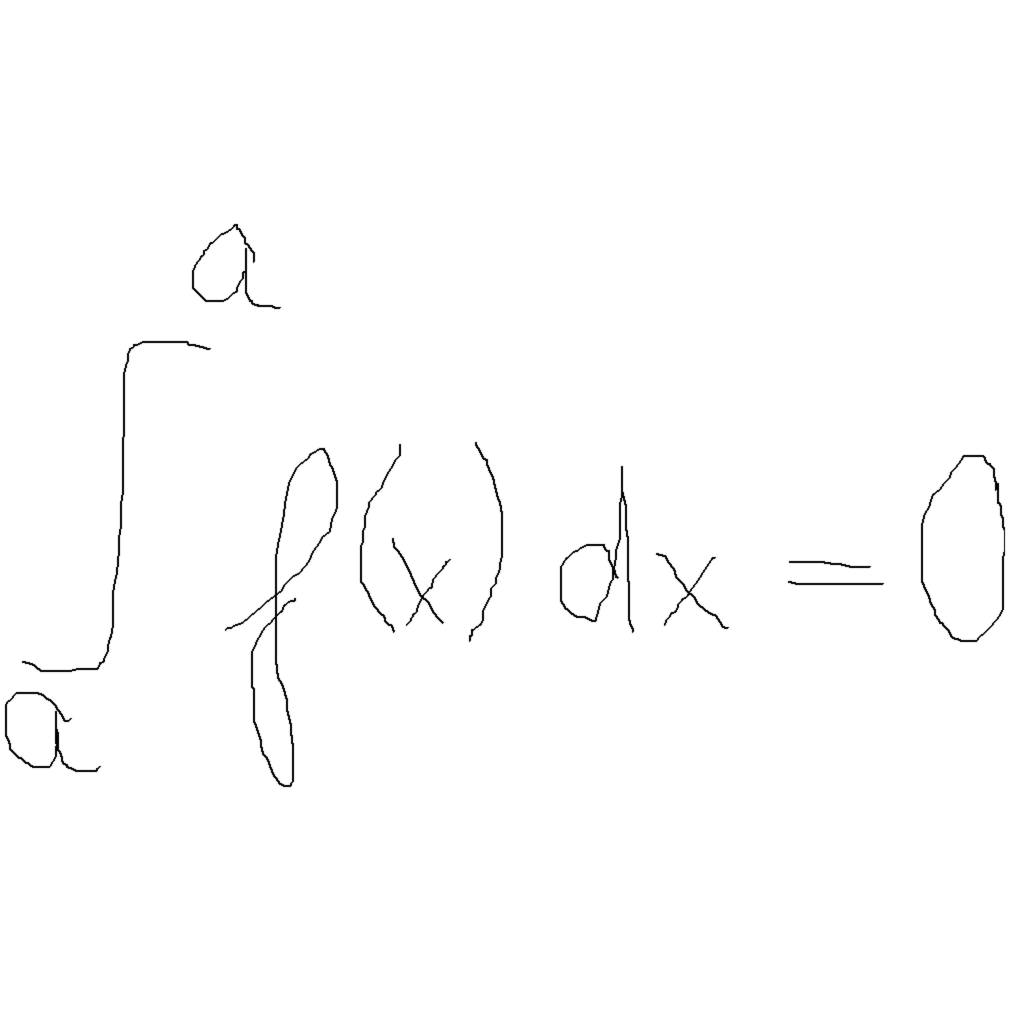 ∫_a^a f(x) dx = 0